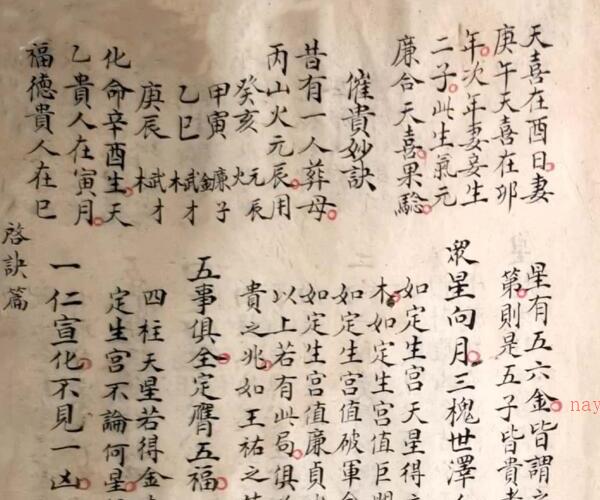 天喜在酉日妻
庚午天喜在卯
年次年妻妾生
二子此生氣元
廉合天喜果驗
催貴妙訣
昔有一人葬母
丙山火元辰用
癸亥 火元辰
甲寅 金廉子
乙巳 木武才
庚辰 木武才
化命辛酉生天
乙貴人在寅月
福德貴人在巳
星有五六金皆謂
第則是五子皆貴
眾星向月三槐世澤
如定生宮天星得
木如定生宮值巨門
如定生宮值破軍
如定生宮值廉貞
以上若有此局俱
貴之兆如王祐之
五事俱全定膺五福
四柱天星若得金
定生宮不論何星
一仁宣化不見一凶
啓訣篇
nay